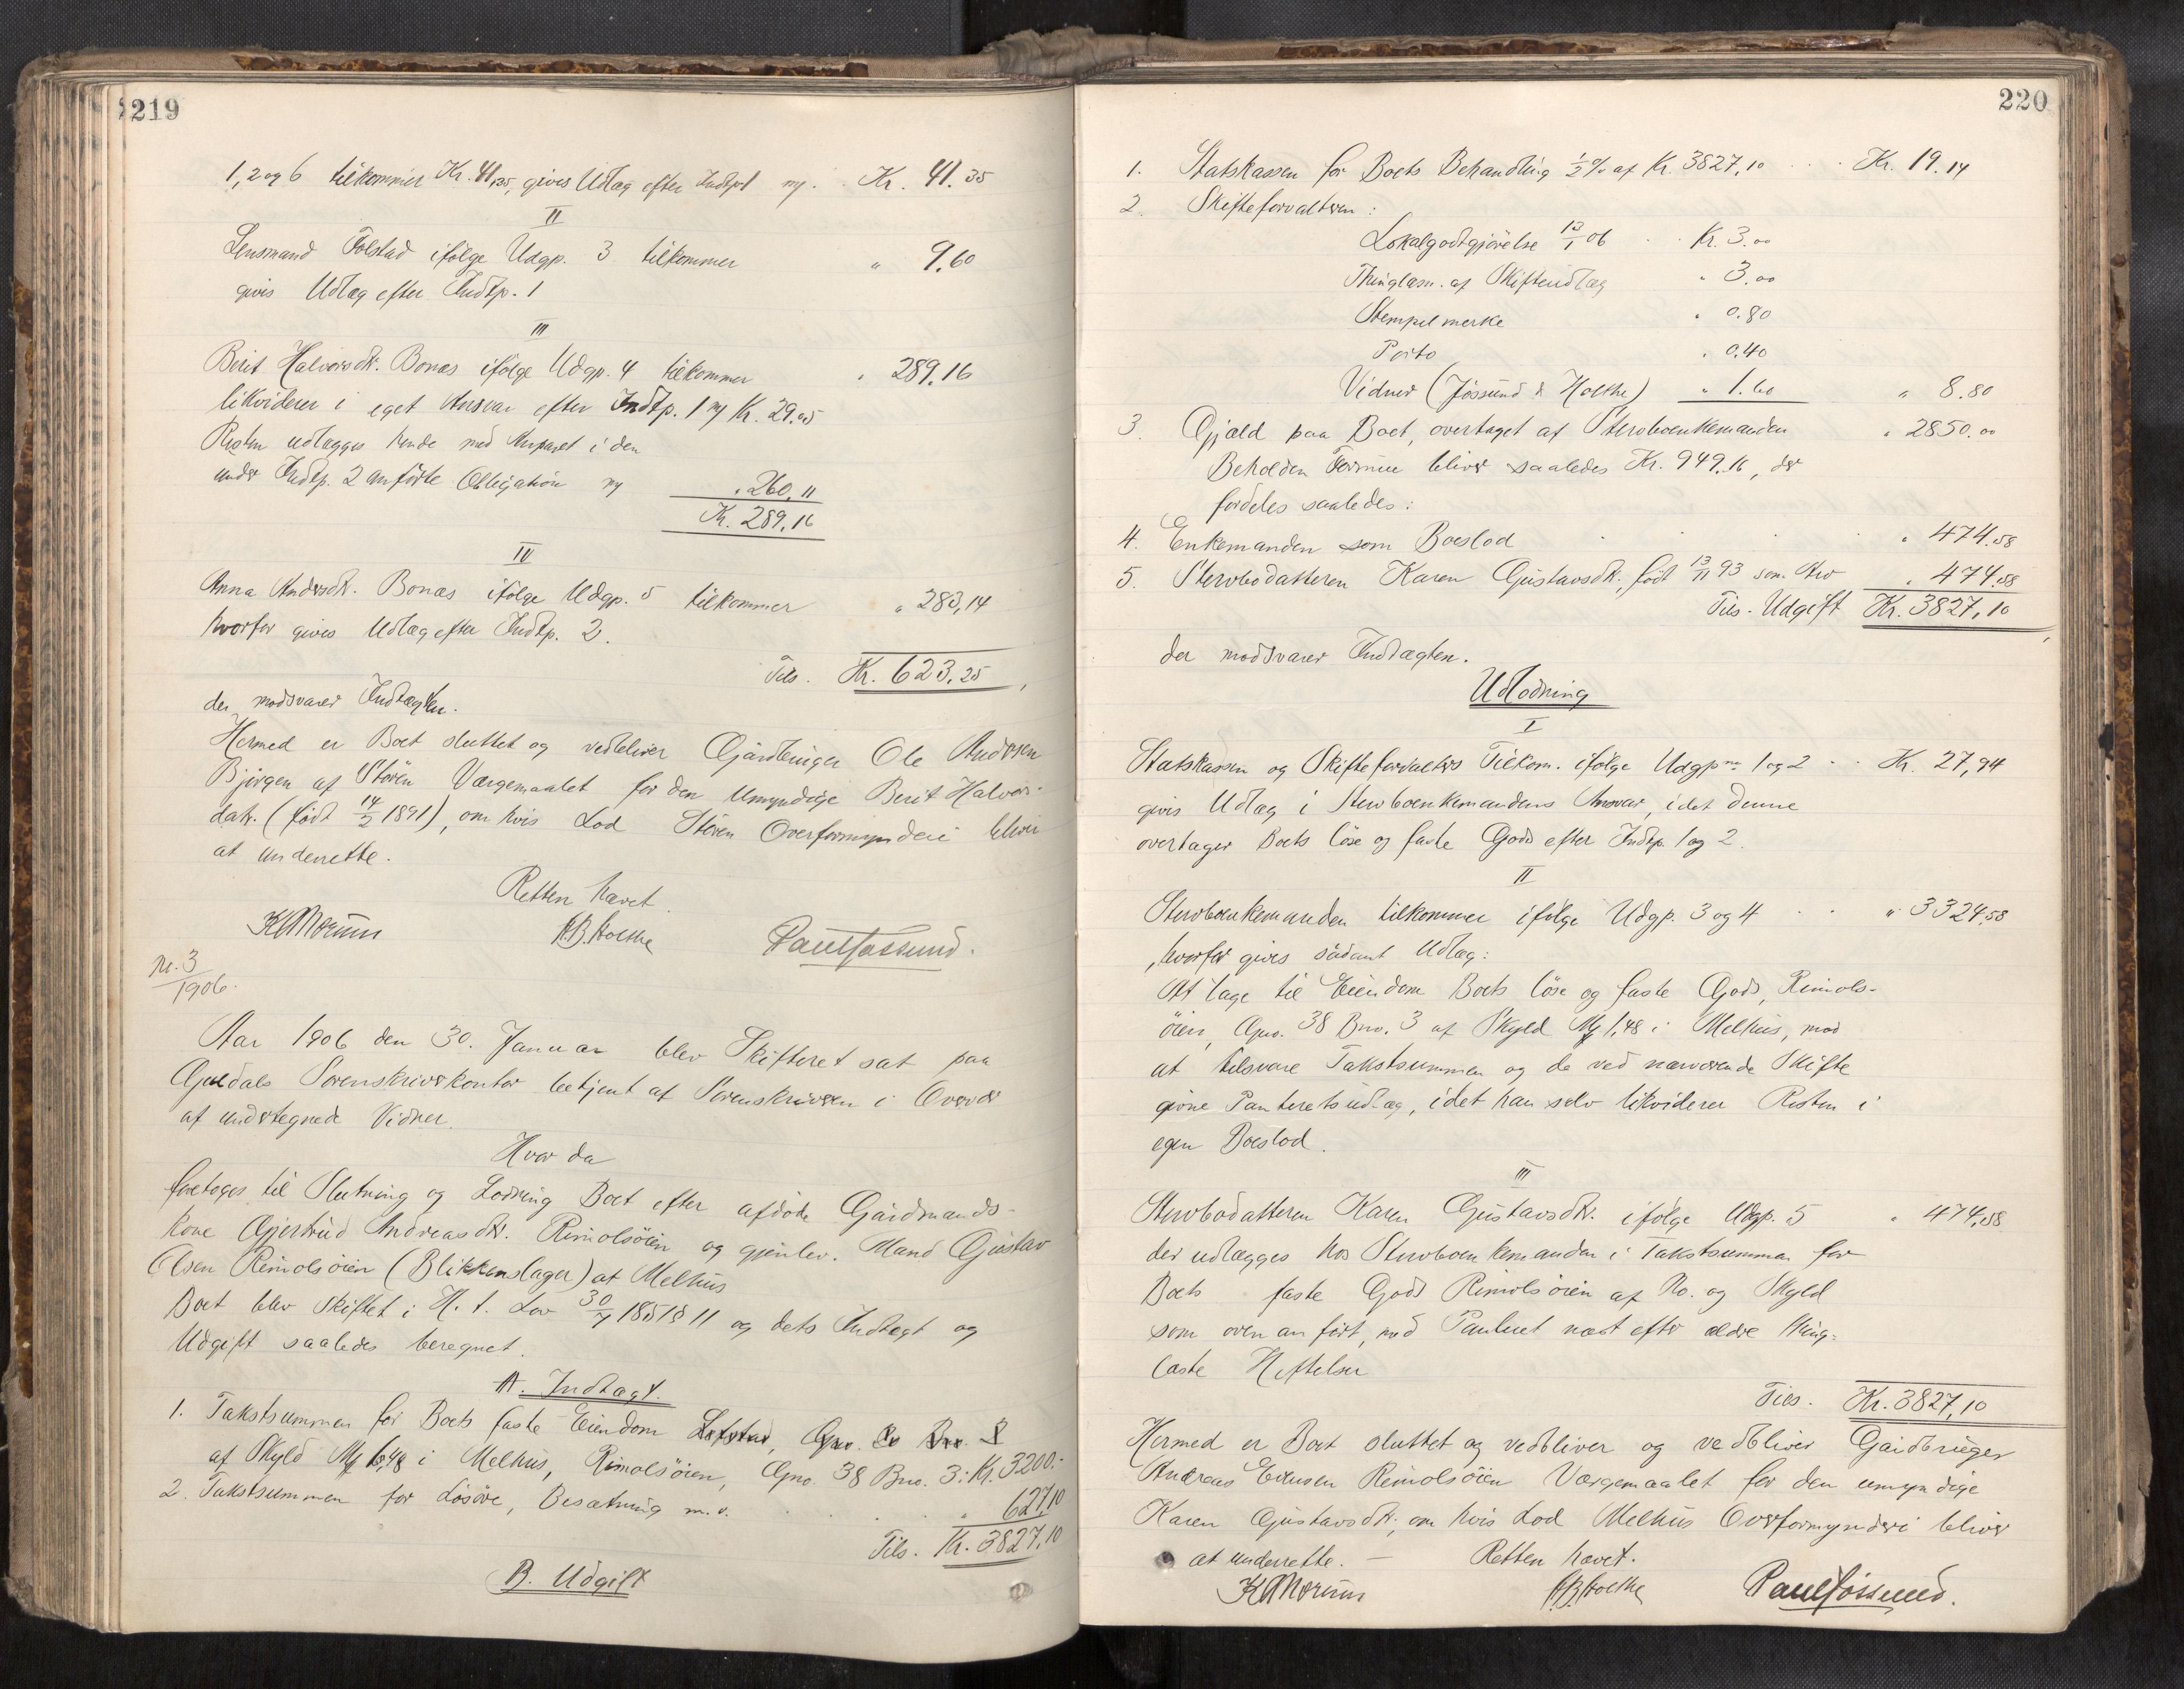 219
1, 2 og 6 tilkommer Kr. 41,35, gives Udlæg efter Indtp. 1 mj. Kr. 41.35
II
Lensmand Folstad ifölge Udgp. 3 tilkommer " 9.60
givis Udlæg efter Indtp. 1
III
Berit Halvorsdtr. Bonæs ifölge Udgp. 4 tilkommer " 289.16
likviderer i eget Ansvar efter Indtp. 1 mj Kr. 29.05
Resten udlægges hende med Anparet i den
under Indtp. 2 anförte Obligation mj " 260,11
Kr. 289,16
IV
Anna Andersdtr. Bonæs ifölge Udgp. 5 tilkommer " 283,14
hvorfor gives Udlæg efter Indtp. 2.
Tils. Kr. 623,25,
der modsvarer Indtægten.
Hermed er Boet sluttet og vedbliver Gårdbruger Ole Andersen
Bjørgen af Stören Værgemaalet for den Umyndige Berit Halvors-
datr. (født 14/2 1891), om hvis Lod Stören Overformynderi bliver
at underrette.
Retten hævet.
P.B. Holthe Paul Jøssund.
Nr. 3
1906.
Aar 1906 den 30. Januar blev Skifteret sat paa
Guldals Sorenskriverkontor betjent af Sorenskriveren i Overvær
af undertegnede Vidner.
Hvor da
foretoges til Slutning og Lodning Boet efter afdöde Gaardmands-
kone Gjertrud Andreasdtr. Rimolsöien og gjenlev. Mand Gustav
Olsen Rimolsöien (Blikkenslager) af Melhus
Boet blev skiftet i H. t. Lov 30/7 1851 § 11 og dets Indtægt og
Udgift saaledes beregnet.
A. Indtægt.
1. Takstsummen for Boets faste Eiendom
af Skyld Mk 1,48 i Melhus, Rimolsöien, Gno. 38 Bno. 3: Kr. 3200.-
2. Takstsummen for Lösöre, Besætning m. v. " 627,10
Tils. Kr. 3827,10
B. Udgift
220
1. Statskassen for Boets Behandling ½ % af Kr. 3827,10 Kr. 19.14
2. Skifteforvalteren:
Lokalgodtgjörelse 12/1 06 Kr. 3.00
Thinglæsn. af Skifteudlæg " 3.00
Stempelmerke " 0.80
Porto " 0.40
Vidner (Jössund & Holthe) " 1.60 " 8.80
3. Gjæld paa Boet, overtaget af Stervboenkemanden " 2850.00
Beholden Formue bliver saaledes Kr. 949.16, der
fordeles saaledes:
4. Enkemanden som Boeslod " 474.58
5. Stervbodatteren Karen Gustavsdtr., født 13/11 93 som Arv " 474.58
Tils. Udgift Kr. 3827,10,
der modsvarer Indtægten.
Udlodning
I
Statskassen og Skifteforvalters Tilkom. ifölge Udgp nr. 1 og 2 Kr. 27,94
givis Udlæg i Stervboenkemandens Ansvar, idet denne
overtager Boets löse og faste Gods efter Indtp. 1 og 2.
II
Stervboenkemanden tilkommer ifölge Udgp. 3 og 4 " 3324.58
, hvorfor gives sådant Udlæg:
At tage til Eiendom Boets löse og faste Gods, Rimols-
öien, Gno. 38 Bno. 3 af Skyld Mk 1,48 i Melhus, mod
at tilsvare Takstsummen og de ved nærværende Skifte
givne Panteretsudlæg, idet han selv likviderer Resten i
egen Boeslod.
III
Stervbodatteren Karen Gustavsdtr. ifölge Udgp. 5 " 474,58
der udlægges hos Stervboenkemanden i Takstsummen for
Boets faste Gods Rimolsöien af No. og Skyld
som ovenanfört, med Panteret næst efter ældre thing-
læste Heftelser
Tils. Kr. 3827,10
Hermed er Boet sluttet og vedbliver og vedbliver Gaardbruger
Andreas Rimolsöien Værgemaalet for den umyndige
Karen Gustavsdtr., om hvis Lod Melhus Overformynderi bliver
at underrette. — Retten hævet.
P.B. Holthe Paul Jøssund.